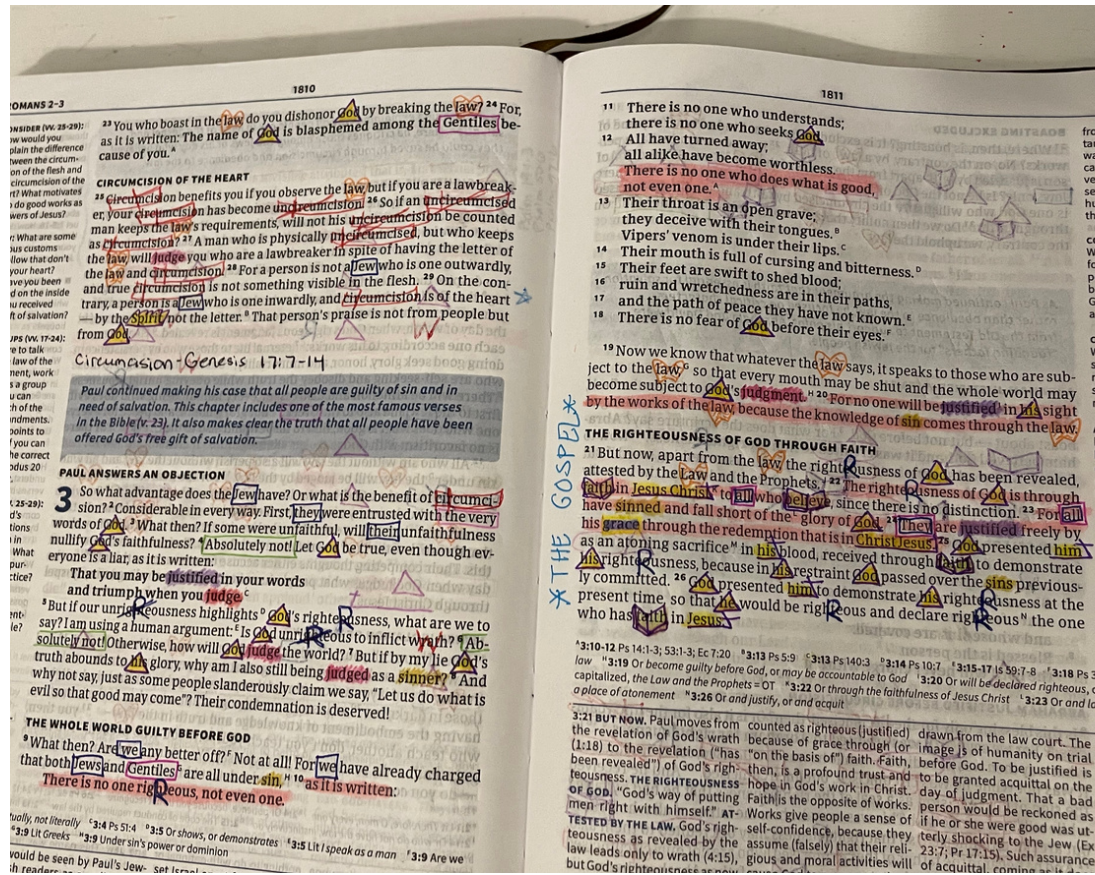 1810
OMANS 2–3
NSIDER (VV. 25-29):
ow would you
plain the difference
ween the circum-
on of the flesh and
circumcision of the
rt? What motivates
do good works as
wers of Jesus?
What are some
us customs
llow that don't
your heart?
ve you been
d on the inside
u received
ft of salvation?
UPS (VV. 17-24):
re to talk
law of the
ment, work
s a group
u can
h of the
ndments.
points to
f you can
he correct
odus 20
23 You who boast in the law do you dishonor God by breaking the law? 24 For,
as it is written: The name of God is blasphemed among the Gentiles be-
cause of you. A
CIRCUMCISION OF THE HEART
25 Circumcision benefits you if you observe the law, but if you are a lawbreak-
er, your circumcision has become uncircumcision. 26 So if an uncircumcised
man keeps the law's requirements, will not his uncircumcision be counted
as circumcision? 27 A man who is physically uncircumcised, but who keeps
the law, will judge you who are a lawbreaker in spite of having the letter of
the law and circumcision. 28 For a person is not a Jew who is one outwardly,
and true circumcision is not something visible in the flesh. 29 On the con-
trary, a person is a Jew who is one inwardly, and circumcision is of the heart
— by the Spirit, not the letter. B That person's praise is not from people but
from God.
Circumcision - Genesis 17:7-14
Paul continued making his case that all people are guilty of sin and in
need of salvation. This chapter includes one of the most famous verses
in the Bible (v. 23). It also makes clear the truth that all people have been
offered God's free gift of salvation.
PAUL ANSWERS AN OBJECTION
3 So what advantage does the Jew have? Or what is the benefit of circumci-
sion? 2 Considerable in every way. First, they were entrusted with the very
words of God. 3 What then? If some were unfaithful, will their unfaithfulness
nullify God's faithfulness? 4 Absolutely not! Let God be true, even though ev-
eryone is a liar, as it is written:
That you may be justified in your words
and triumph when you judge. C
5 But if our unrighteousness highlights D God's righteousness, what are we to
say? I am using a human argument: E Is God unrighteous to inflict wrath? 6 Ab-
solutely not! Otherwise, how will God judge the world? 7 But if by my lie God's
truth abounds to his glory, why am I also still being judged as a sinner? 8 And
why not say, just as some people slanderously claim we say, "Let us do what is
evil so that good may come"? Their condemnation is deserved!
THE WHOLE WORLD GUILTY BEFORE GOD
9 What then? Are we any better off? F Not at all! For we have already charged
that both Jews and Gentiles G are all under sin, H 10 as it is written:
There is no one righteous, not even one.
tually, not literally C 3:4 Ps 51:4 D 3:5 Or shows, or demonstrates E 3:5 Lit I speak as a man F 3:9 Are we
G 3:9 Lit Greeks H 3:9 Under sin's power or dominion
would be seen by Paul's Jew-
1811
11 There is no one who understands;
there is no one who seeks God.
12 All have turned away;
all alike have become worthless.
There is no one who does what is good,
not even one. A
13 Their throat is an open grave;
they deceive with their tongues. B
Vipers' venom is under their lips. C
14 Their mouth is full of cursing and bitterness. D
15 Their feet are swift to shed blood;
16 ruin and wretchedness are in their paths,
17 and the path of peace they have not known. E
18 There is no fear of God before their eyes. F
19 Now we know that whatever the law says, it speaks to those who are sub-
ject to the law, G so that every mouth may be shut and the whole world may
become subject to God's judgment. H 20 For no one will be justified in his sight
by the works of the law, because the knowledge of sin comes through the law.
* THE GOSPEL *
THE RIGHTEOUSNESS OF GOD THROUGH FAITH
21 But now, apart from the law, the righteousness of God has been revealed,
attested by the Law and the Prophets. 22 The righteousness of God is through
faith in Jesus Christ to all who believe, since there is no distinction. 23 For all
have sinned and fall short of the glory of God. 24 They are justified freely by
his grace through the redemption that is in Christ Jesus. 25 God presented him
as an atoning sacrifice M in his blood, received through faith, to demonstrate
his righteousness, because in his restraint God passed over the sins previous-
ly committed. 26 God presented him to demonstrate his righteousness at the
present time, so that he would be righteous and declare righteous N the one
who has faith in Jesus.
A 3:10-12 Ps 14:1-3; 53:1-3; Ec 7:20 B 3:13 Ps 5:9 C 3:13 Ps 140:3 D 3:14 Ps 10:7 E 3:15-17 Is 59:7-8 F 3:18 Ps
law H 3:19 Or become guilty before God, or may be accountable to God 3:20 Or will be declared righteous,
capitalized, the Law and the Prophets = OT 3:22 Or through the faithfulness of Jesus Christ 3:23 Or and
a place of atonement N 3:26 Or and justify, or and acquit
3:21 BUT NOW. Paul moves from
the revelation of God's wrath
(1:18) to the revelation ("has
been revealed") of God's righ-
teousness. THE RIGHTEOUSNESS
OF GOD. "God's way of putting
men right with himself." AT-
TESTED BY THE LAW. God's righ-
teousness as revealed by the
law leads only to wrath (4:15),
but God's righteousness as now
counted as righteous (justified)
because of grace through (or
"on the basis of") faith. Faith,
then, is a profound trust and
hope in God's work in Christ.
Faith is the opposite of works.
Works give people a sense of
self-confidence, because they
assume (falsely) that their reli-
gious and moral activities will
drawn from the law court. The
image is of humanity on trial
before God. To be justified is
to be granted acquittal on the
day of judgment. That a bad
person would be reckoned as
if he or she were good was ut-
terly shocking to the Jew (Ex
23:7; Pr 17:15). Such assurance
of acquittal, coming as it does